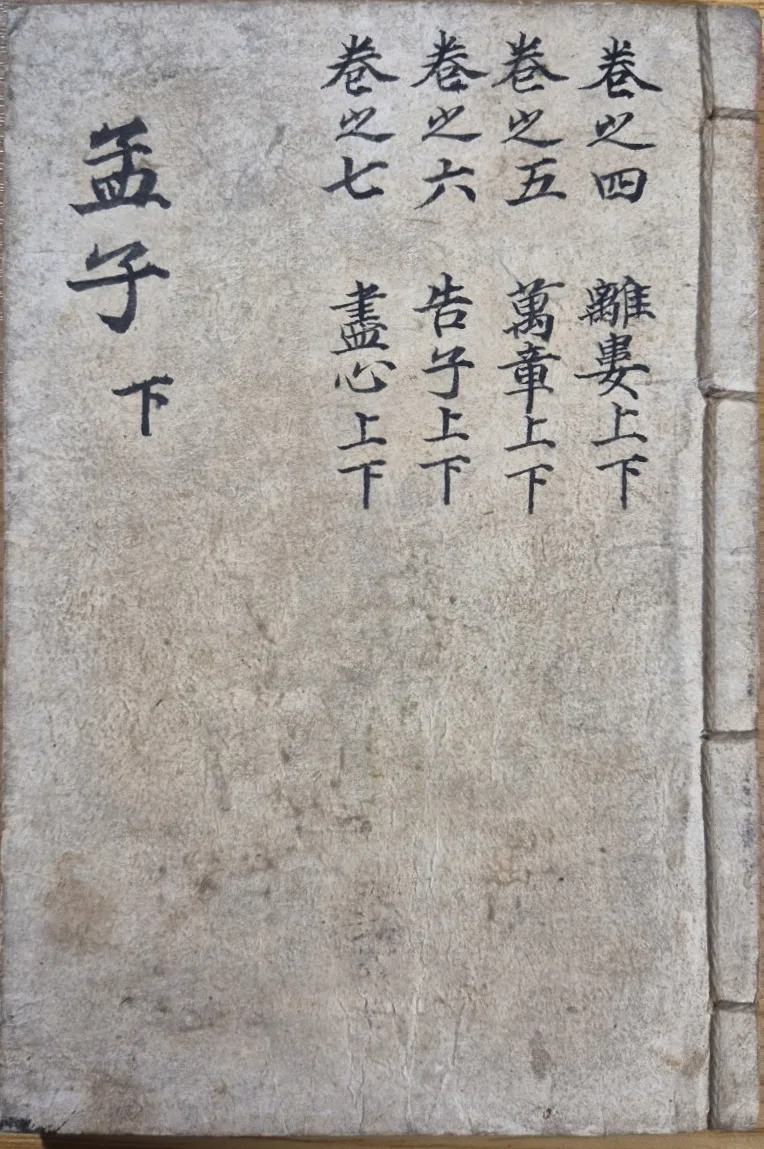 卷之四 離婁上下
卷之五 萬章上下
卷之六 告子上下
卷之七 盡心上下
孟子 下